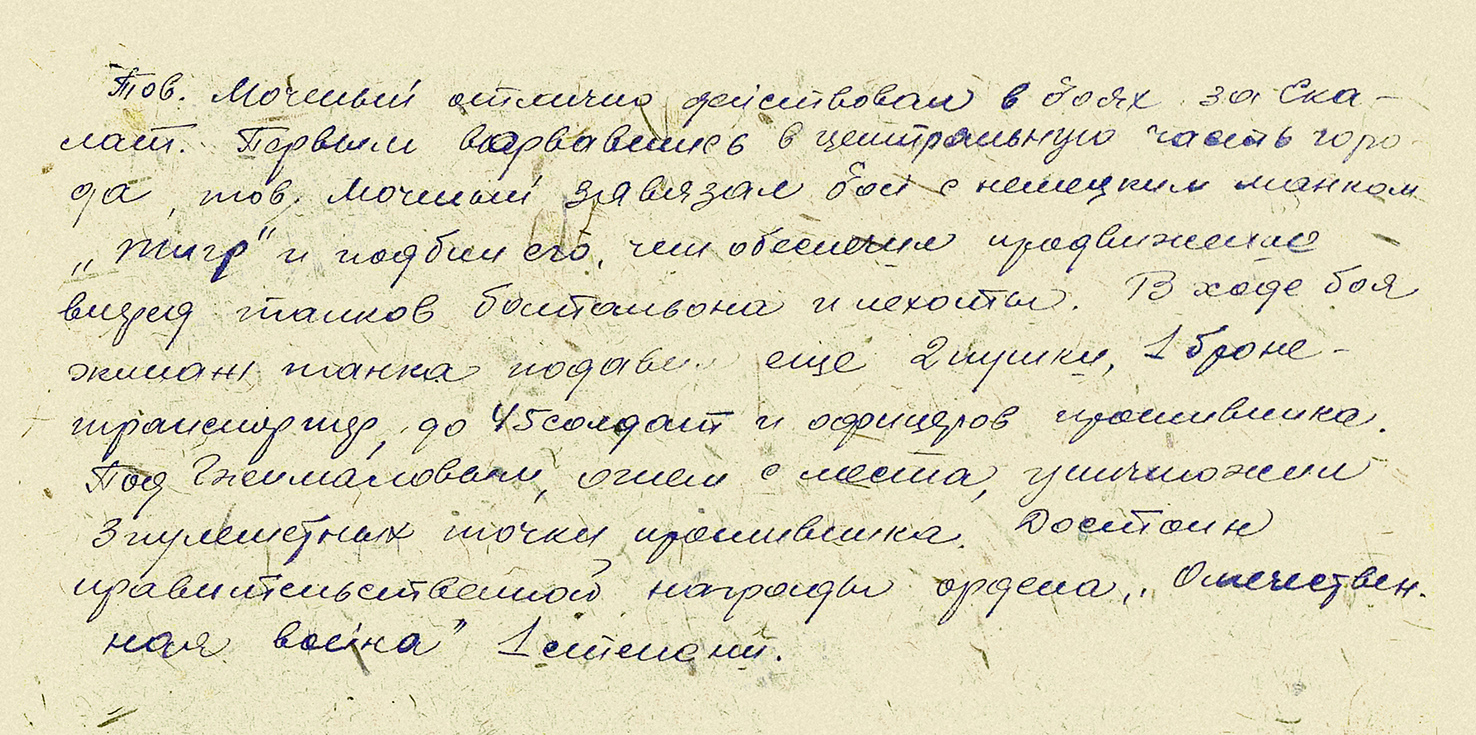 Тов. Моченый отлично действовал в боях за Ска-
лат. Первым ворвавшись в центральную часть горо-
да, тов. Моченый завязал бой с немецким танком
„Тигр" и подбил его, чем обеспечил продвижение
вперед танков батальона и пехоты. В ходе боя
экипаж танка подавил еще 2 пушки, 1 броне-
транспортер, до 45 солдат и офицеров противника.
Под Гжималовым, огнем с места, уничтожил
3 пулеметных точки противника. Достоин
правительственной награды ордена „Отечествен-
ная война" 1 степени.